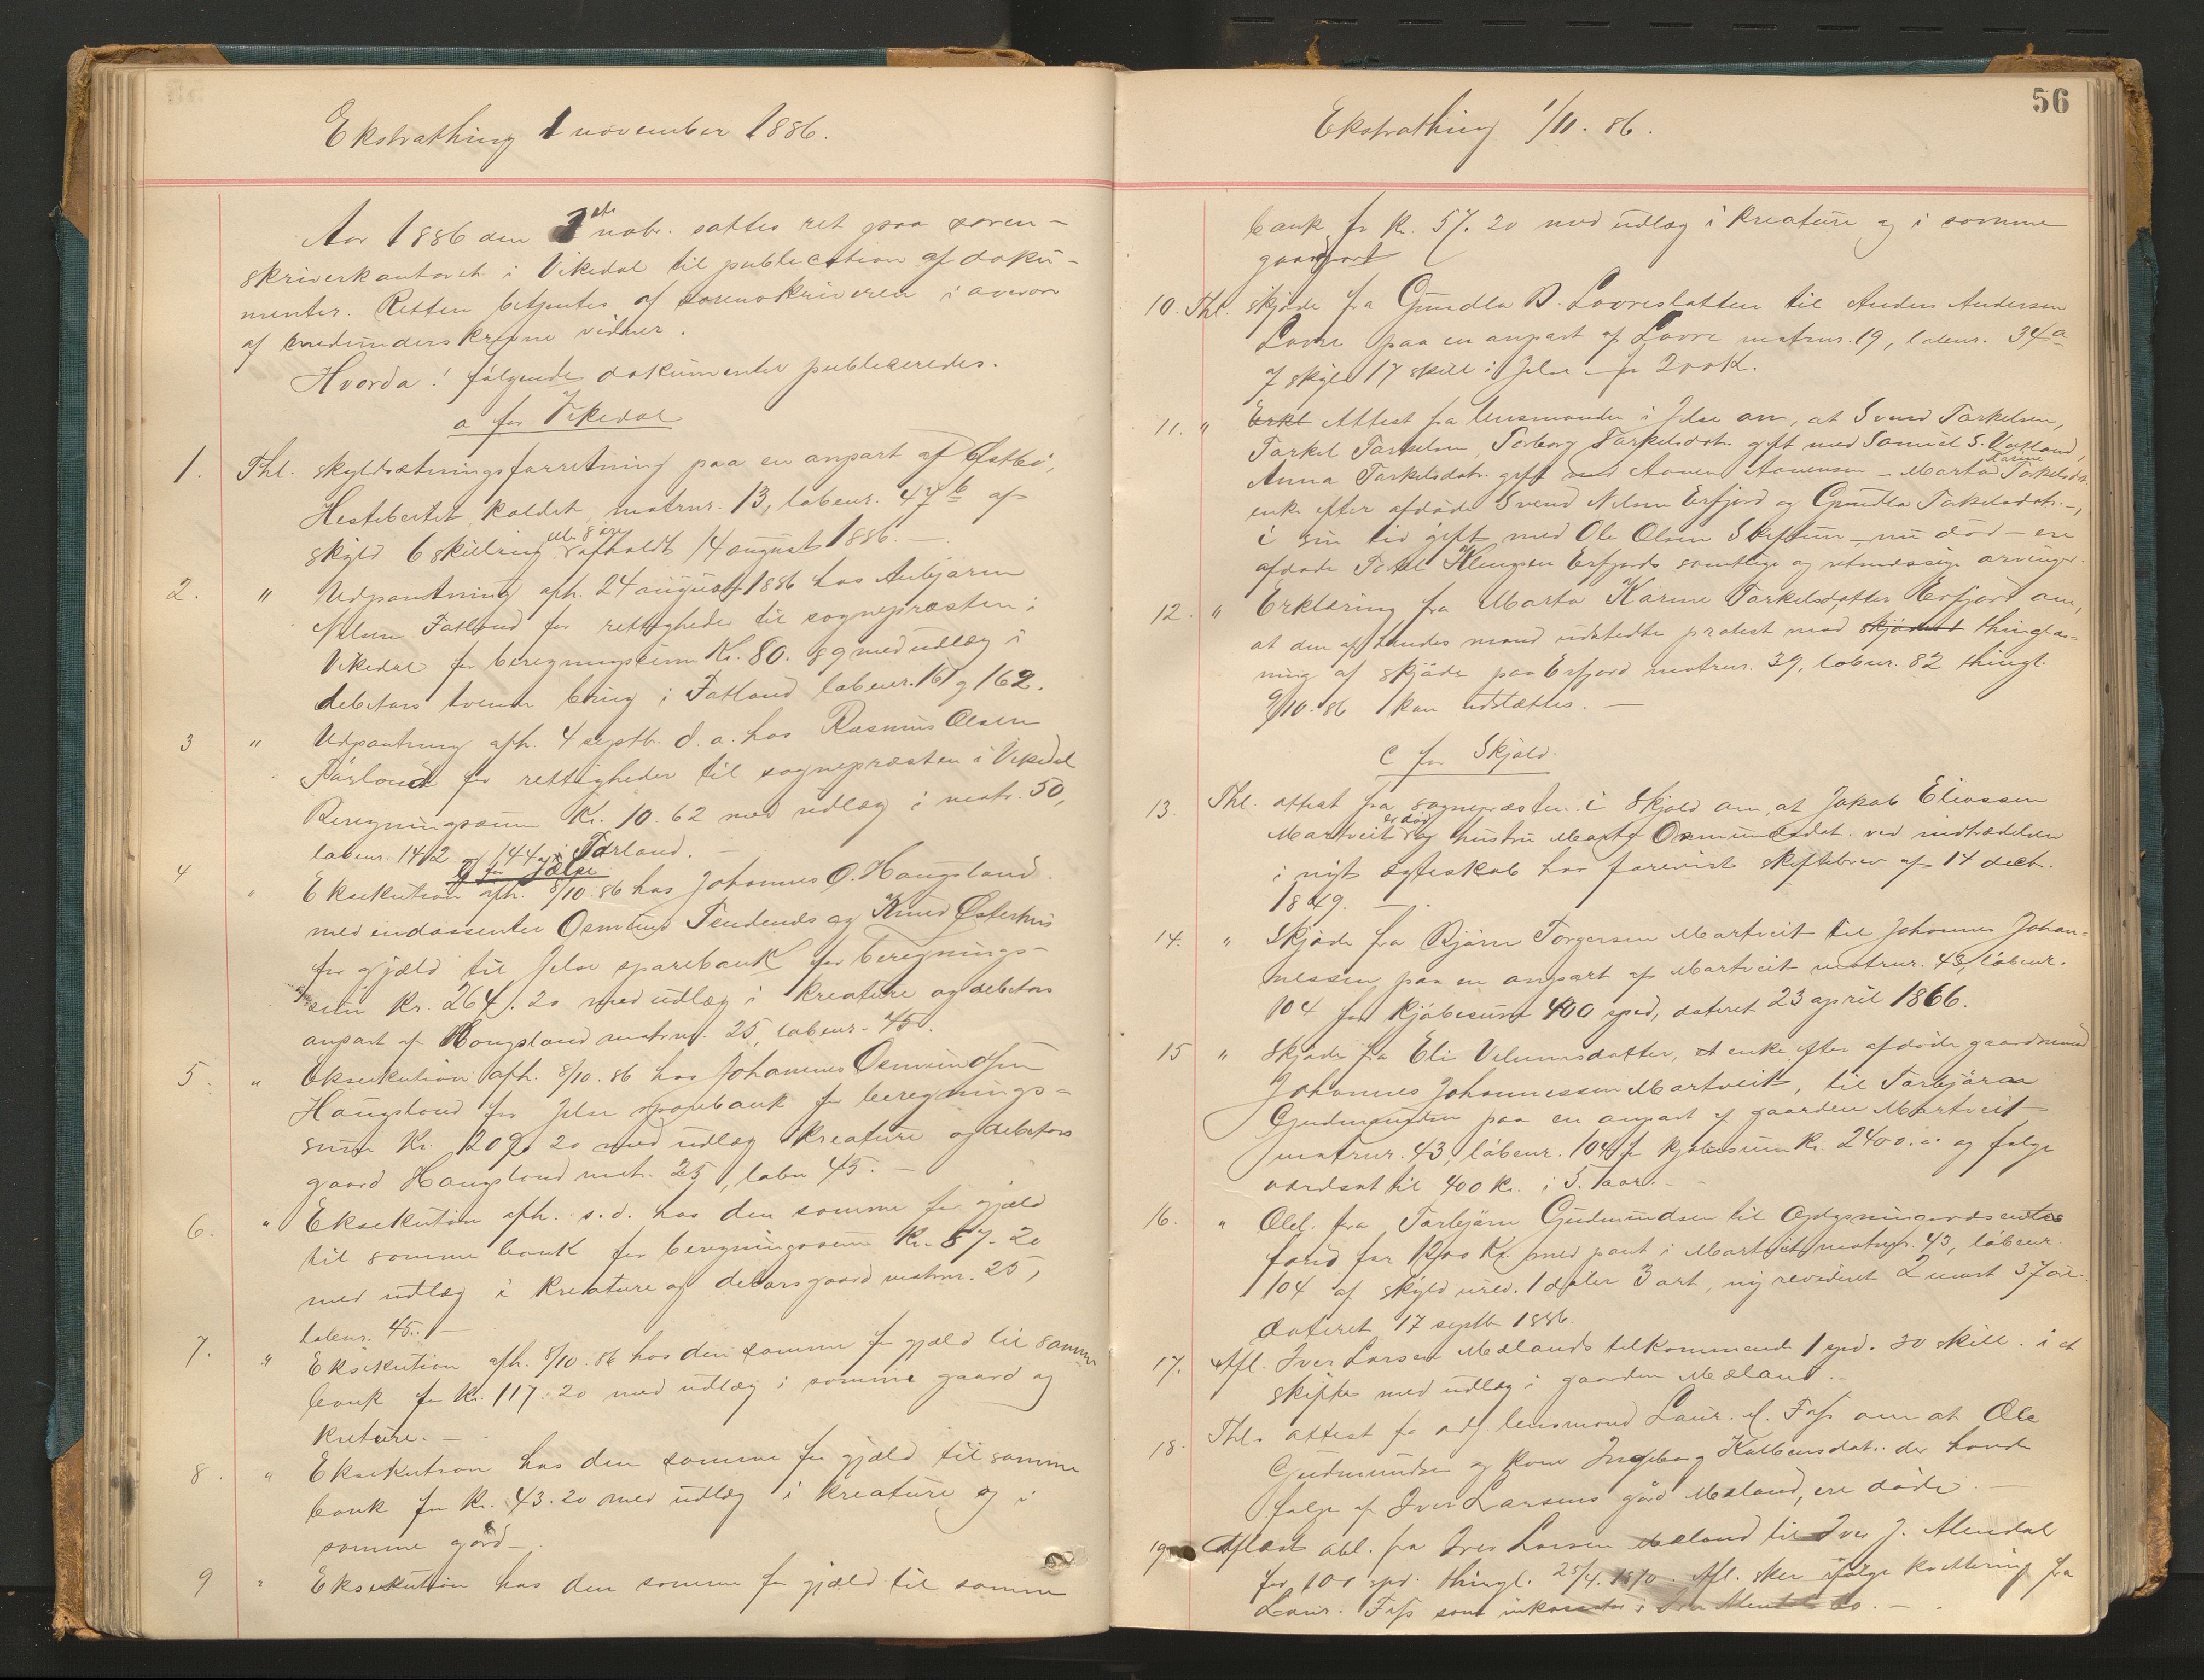 Ekstrathing 1 november 1886.
Aar 1886 den 1ste nobr. sattes ret paa soren-
skriverkontoret i Vikedal til publication af doku-
menter. Retten betjentes af sorenskriveren i overvær
af medunderskrevne vidner.
Hvorda! følgende dokumenter publiceredes.
a for Vikedal
1. Thl. skyldsætningsforretning paa en anpart af Østbø,
Hestebertet kaldet, matrnr. 13, løbenr. 47b af
skyld 6 skilling afholdt 14 august 1886. —
2. " Udpantning afh. 24 august 1886 hos Anbjørn
Nilsen Fatland for rettigheder til sognepræsten i
Vikedal for beregningssum Kr. 80. 89 med udlæg i
debitors tvende brug i Fatland løbenr. 161 og 162.
3 " Udpantning afh. 4 septb. d. a. hos Rasmus Olsen
Førland for rettigheder til sognepræsten i Vikedal
Beregningssum Kr. 10. 62 med udlæg i matr. 50,
løbenr. 142 og 144 i Førland. —
b for Jelse
4 " Eksekution afh. 8/10. 86 hos Johannes O. Haugsland
med endossenter Osmund Tendenes og Knud Østerhus
for gjæld til Jelse sparebank for beregnings-
sum Kr. 264. 20 med udlæg i kreature og debitors
anpart af Haugsland matrnr. 25, løbenr. 45.
5. " Eksekution afh. 8/10. 86 hos Johannes Osmundsen
Haugsland for Jelse sparebank for beregnings-
sum Kr. 209. 20 med udlæg kreature og debitors
gaard Haugsland matr. 25, løbn 45. —
6. " Eksekution afh. s. d. hos den samme for gjæld
til samme bank for beregningssum Kr. 87. 20
med udlæg i kreature og debitorsgaard matrnr. 25,
løbenr. 45. —
7. " Eksekution afh. 8/10. 86 hos den samme for gjæld til samme
bank for Kr. 117. 20 med udlæg i samme gaard og
kreture. —
8. " Eksekution hos den samme for gjæld til samme
bank for Kr. 43. 20 med udlæg i kreature og i
samme gård —
9 " Eksekution hos den samme for gjæld til samme
56
Ekstrathing 1/11. 86.
bank for Kr. 57. 20 med udlæg i kreature og i samme
gaard
10. Thl. skjøde fra Gundla B. Lovreslatten til Anders Andersen
Lovre paa en anpart af Lovre matrnr. 19, løbenr. 34a
af skyld 17 skill i Jelse for 200 K.
11. " Erkl Attest fra lensmanden i Jelse om, at Svend Tarkelsen,
Tarkel Tarkelsen, Torborg Tarkelsdtr. gift med Samuel S. Vatland,
Anna Tarkelsdatr. gift med Aanen Aanensen — Marta Karine Tarkelsdtr.
enke efter afdøde Svend Nilsen Erfjord og Gundla Tarkelsdatr. —,
i sin tid gift med Ole Olsen Steffun — nu død — ere
afdøde Tarkel Klungsen Erfjords samtlige og retmæssige arvinger.
12. " Erklæring fra Marta Karine Tarkelsdatter Erfjord om,
at den af hendes mand udstedte protest mod skjødet thinglæs-
ning af skjøde paa Erfjord matrnr. 39, løbnr. 82 thingl.
9/10. 86 kan udslættes. —
C for Skjold.
13. Thl. attest fra sognepræsten i Skjold om, at Jakob Eliassen
Martveit er død og hustru Marta Osmundsdat. ved indtrædelsen
i nyt egteskab har forevist skiftebrev af 14 decb.
1849. —
14. " Skjøde fra Bjørn Torgersen Martveit til Johannes Johan-
nessen paa en anpart af Martveit matrnr. 43, løbenr.
104 for kjøbesum 400 spd, dateret 23 april 1866.
15 " Skjøde fra Eli Velumsdatter, enke efter afdøde gaardmand
Johannes Johannessen Martveit, til Torbjørn
Gudmundsen paa en anpart af gaarden Martveit
matrnr. 43, løbenr. 104 for kjøbesum Kr. 2400.00 og følge
værdsat til 400 Kr. i 5. aar. —
16. " Obl. fra Torbjørn Gudmundsen til Oplysningsvæsentes
fond for 1200 Kr. med pant i Martveit matrnr. 43, løbenr.
104 af skyld urev. 1 daler 3 ort, ny revideret 2 mark 37 øre.
Dateret 17 septb 1886.
17. Afl. Iver Larsen Mælands tilkommende 1 spd. 30 skill. i et
skifte med udlæg i gaarden Mæland. —
18. Thl. attest fra adj. lensmand Laur. M. Fass om at Ole
Gudmundsen og kone Ingeborg Kolbensdat. der havde
følge af Iver Larsens gård Mæland, ere døde. —
19 Aflæst obl. fra Iver Larsen Mæland til Iver J. Alendal
for 100 spd. thingl. 25/4. 1870. Afl. sker ifølge kvittering fra
Laur. Fass som